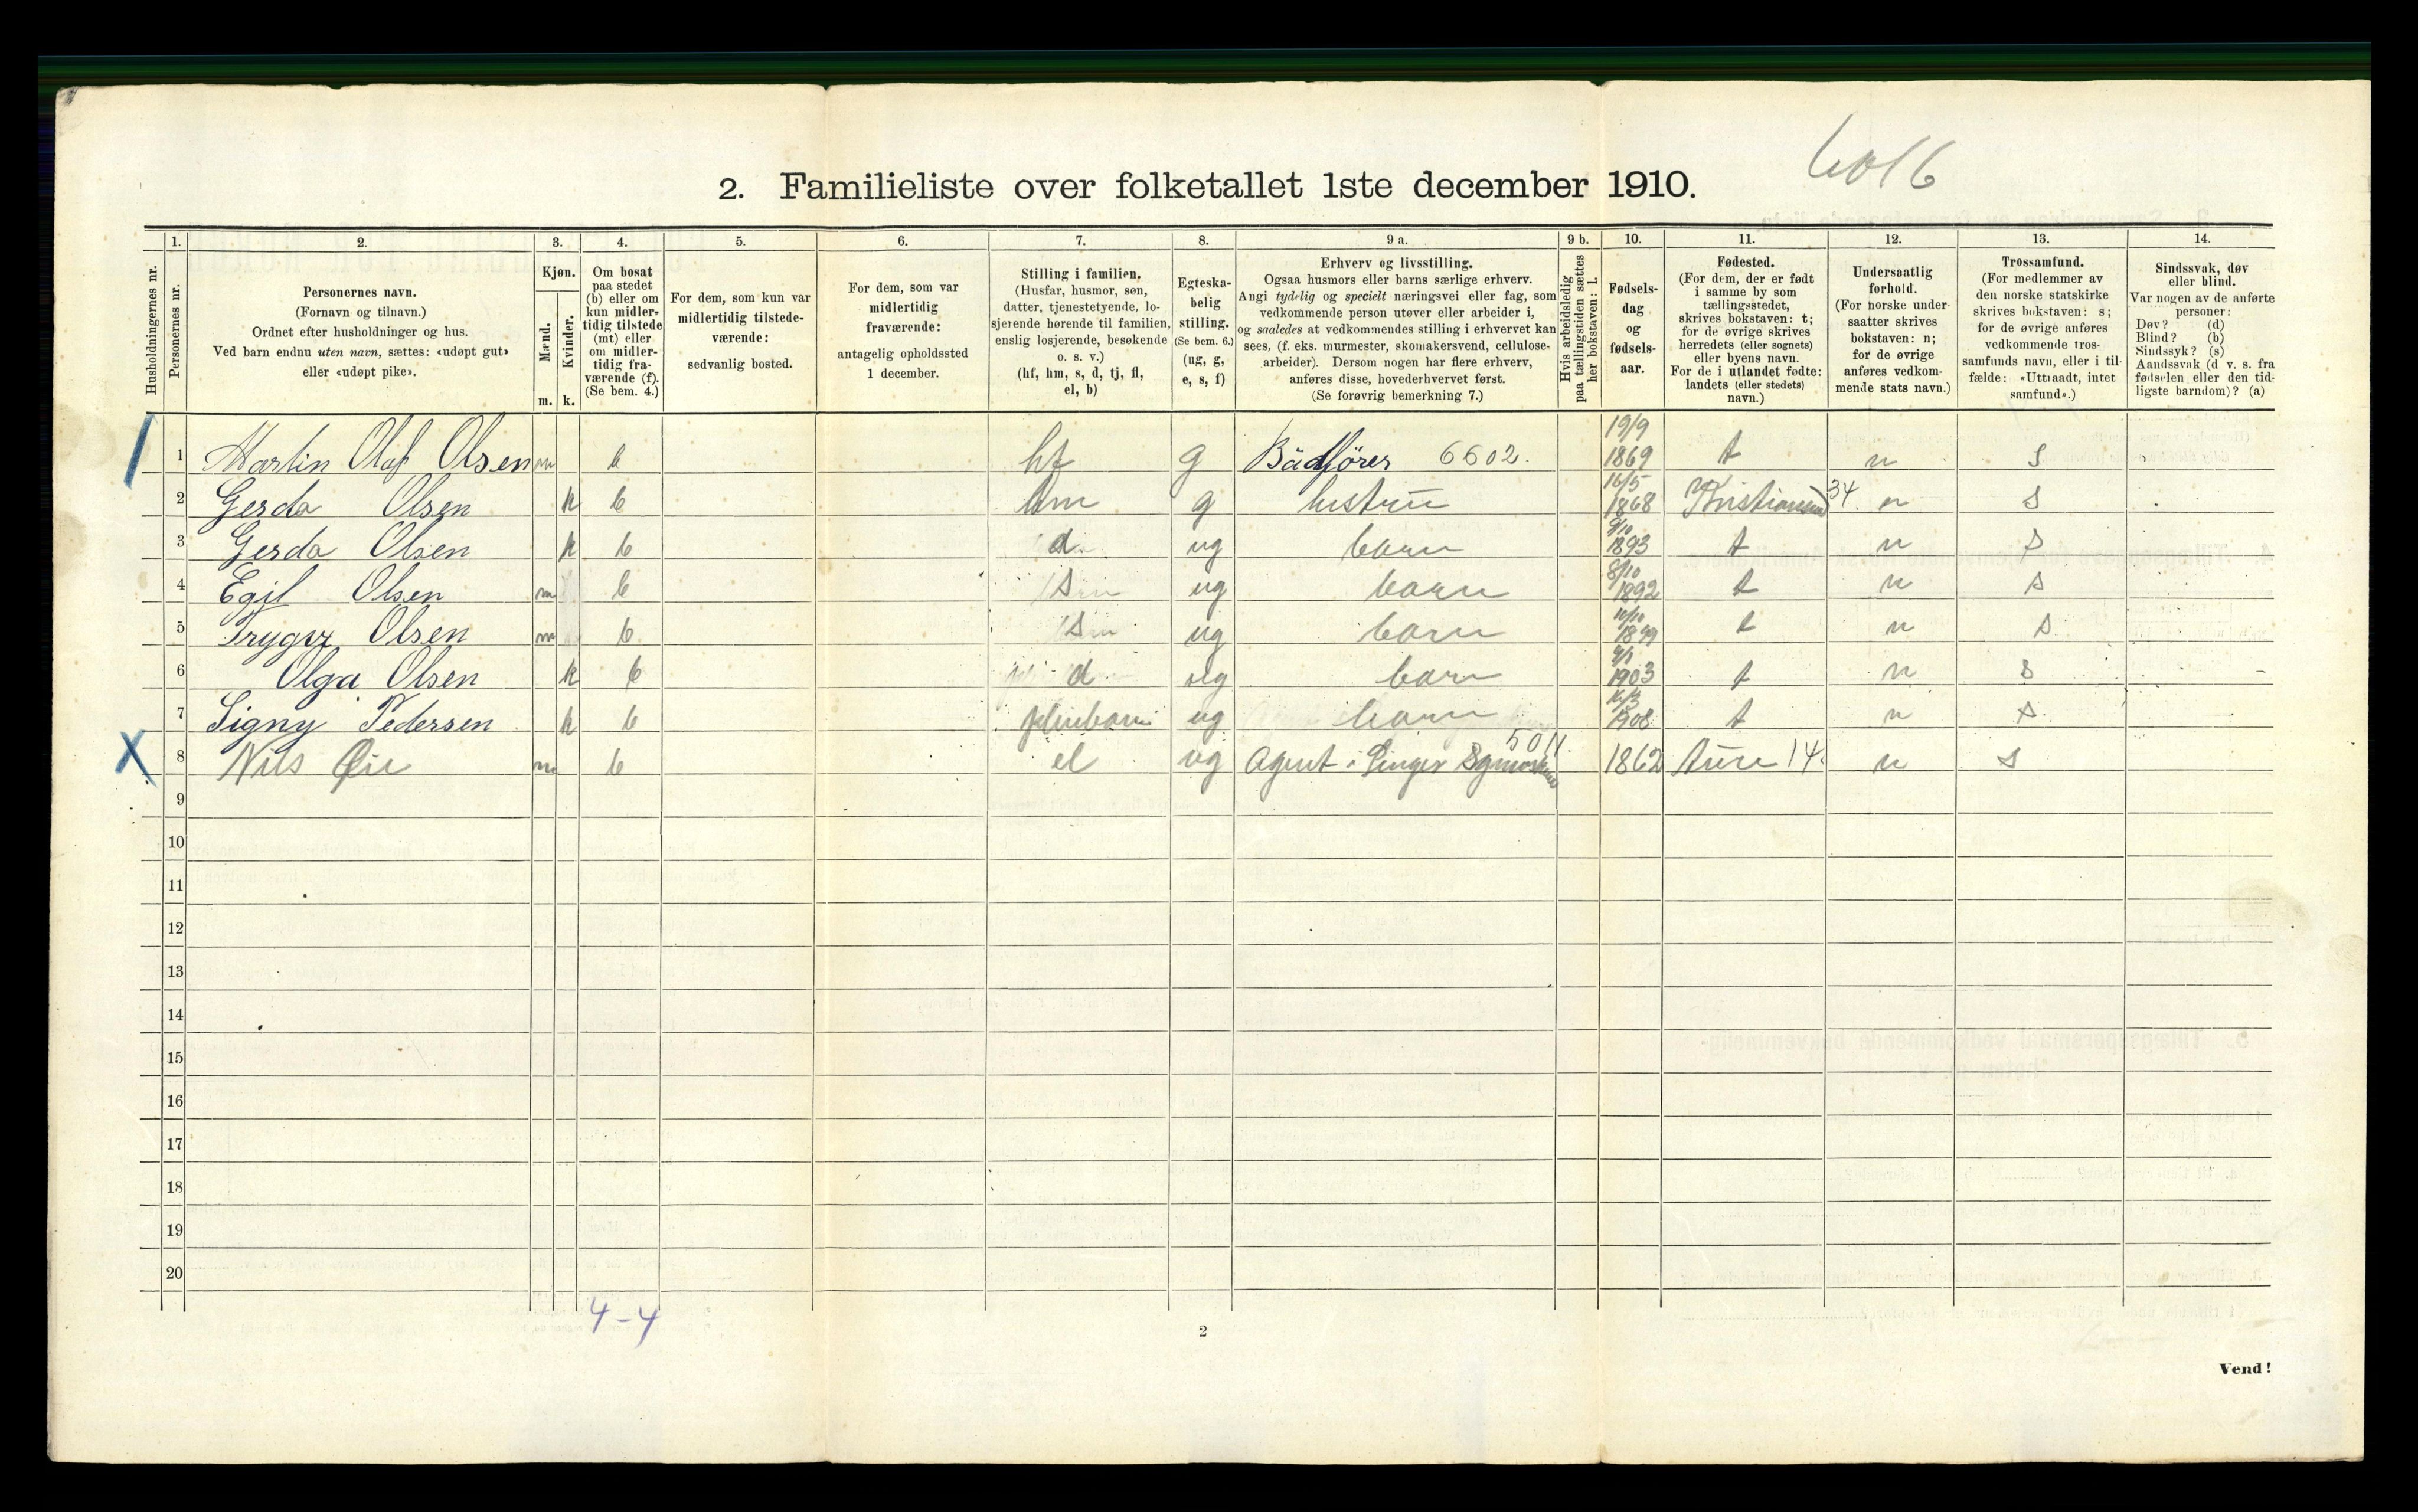 2. Familieliste over folketallet 1ste december 1910.
1. 2. 3. 4. 5. 6. 7. 8. 9 a. 9 b. 10. 11. 12. 13. 14.
Husholdningernes nr.
Personernes nr.
Personernes navn.
(Fornavn og tilnavn.)
Ordnet efter husholdninger og hus.
Ved barn endnu uten navn, sættes: «udøpt gut»
eller «udøpt pike».
Kjøn.
Mænd.
Kvinder.
m. k.
Om bosat
paa stedet
(b) eller om
kun midler-
tidig tilstede
(mt) eller
om midler-
tidig fra-
værende (f).
(Se bem. 4.)
For dem, som kun var
midlertidig tilstede-
værende:
sedvanlig bosted.
For dem, som var
midlertidig
fraværende:
antagelig opholdssted
1 december.
Stilling i familien.
(Husfar, husmor, søn,
datter, tjenestetyende, lo-
sjerende hørende til familien,
enslig losjerende, besøkende
o. s. v.)
(hf, hm, s, d, tj, fl,
el, b)
Egteska-
belig
stilling.
(Se bem. 6.)
(ug, g,
e, s, f)
Erhverv og livsstilling.
Ogsaa husmors eller barns særlige erhverv.
Angi tydelig og specielt næringsvei eller fag, som
vedkommende person utøver eller arbeider i,
og saaledes at vedkommendes stilling i erhvervet kan
sees, (f. eks. murmester, skomakersvend, cellulose-
arbeider). Dersom nogen har flere erhverv,
anføres disse, hovederhvervet først.
(Se forøvrig bemerkning 7.)
Hvis arbeidsledig
paa tællingstiden sættes
her bokstaven: l.
Fødsels-
dag
og
fødsels-
aar.
Fødested.
(For dem, der er født
i samme by som
tællingsstedet,
skrives bokstaven: t;
for de øvrige skrives
herredets (eller sognets)
eller byens navn.
For de i utlandet fødte:
landets (eller stedets)
navn.)
Undersaatlig
forhold.
(For norske under-
saatter skrives
bokstaven: n;
for de øvrige
anføres vedkom-
mende stats navn.)
Trossamfund.
(For medlemmer av
den norske statskirke
skrives bokstaven: s;
for de øvrige anføres
vedkommende tros-
samfunds navn, eller i til-
fælde: «Uttraadt, intet
samfund».)
Sindssvak, døv
eller blind.
Var nogen av de anførte
personer:
Døv? (d)
Blind? (b)
Sindssyk? (s)
Aandssvak (d. v. s. fra
fødselen eller den tid-
ligste barndom)? (a)
1 Martin Olaf Olsen m b hf g Bådfører 6602. 19/9 1869 t n s
2 Gerda Olsen k b hm g hustru 16/5 1868 Kristiansund 34 n s
3 Gerda Olsen k b d ug barn 1893 t n s
4 Egil Olsen m b s ug barn 8/10 1892 t n s
5 Trygve Olsen m b s ug barn 1899 t n s
6 Olga Olsen k b d ug barn 1903 t n s
7 Signy Pedersen k b pleiebarn ug barn 1908 t n s
8 Nils Øie m b el ug Agent i Singer Symaskiner 5011. 1862 Aure 14. n s
9
10
11
12
13
14
15
16
17
18
19
20
4-4
2
Vend!